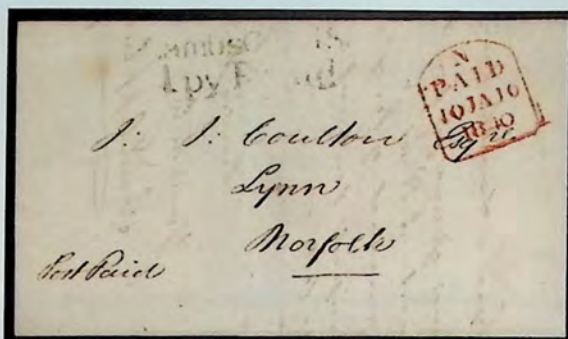 1 py P
N
PAID
10 JA 10
1840
J: J: Coulton Esqre
Lynn
Norfolk
Post Paid